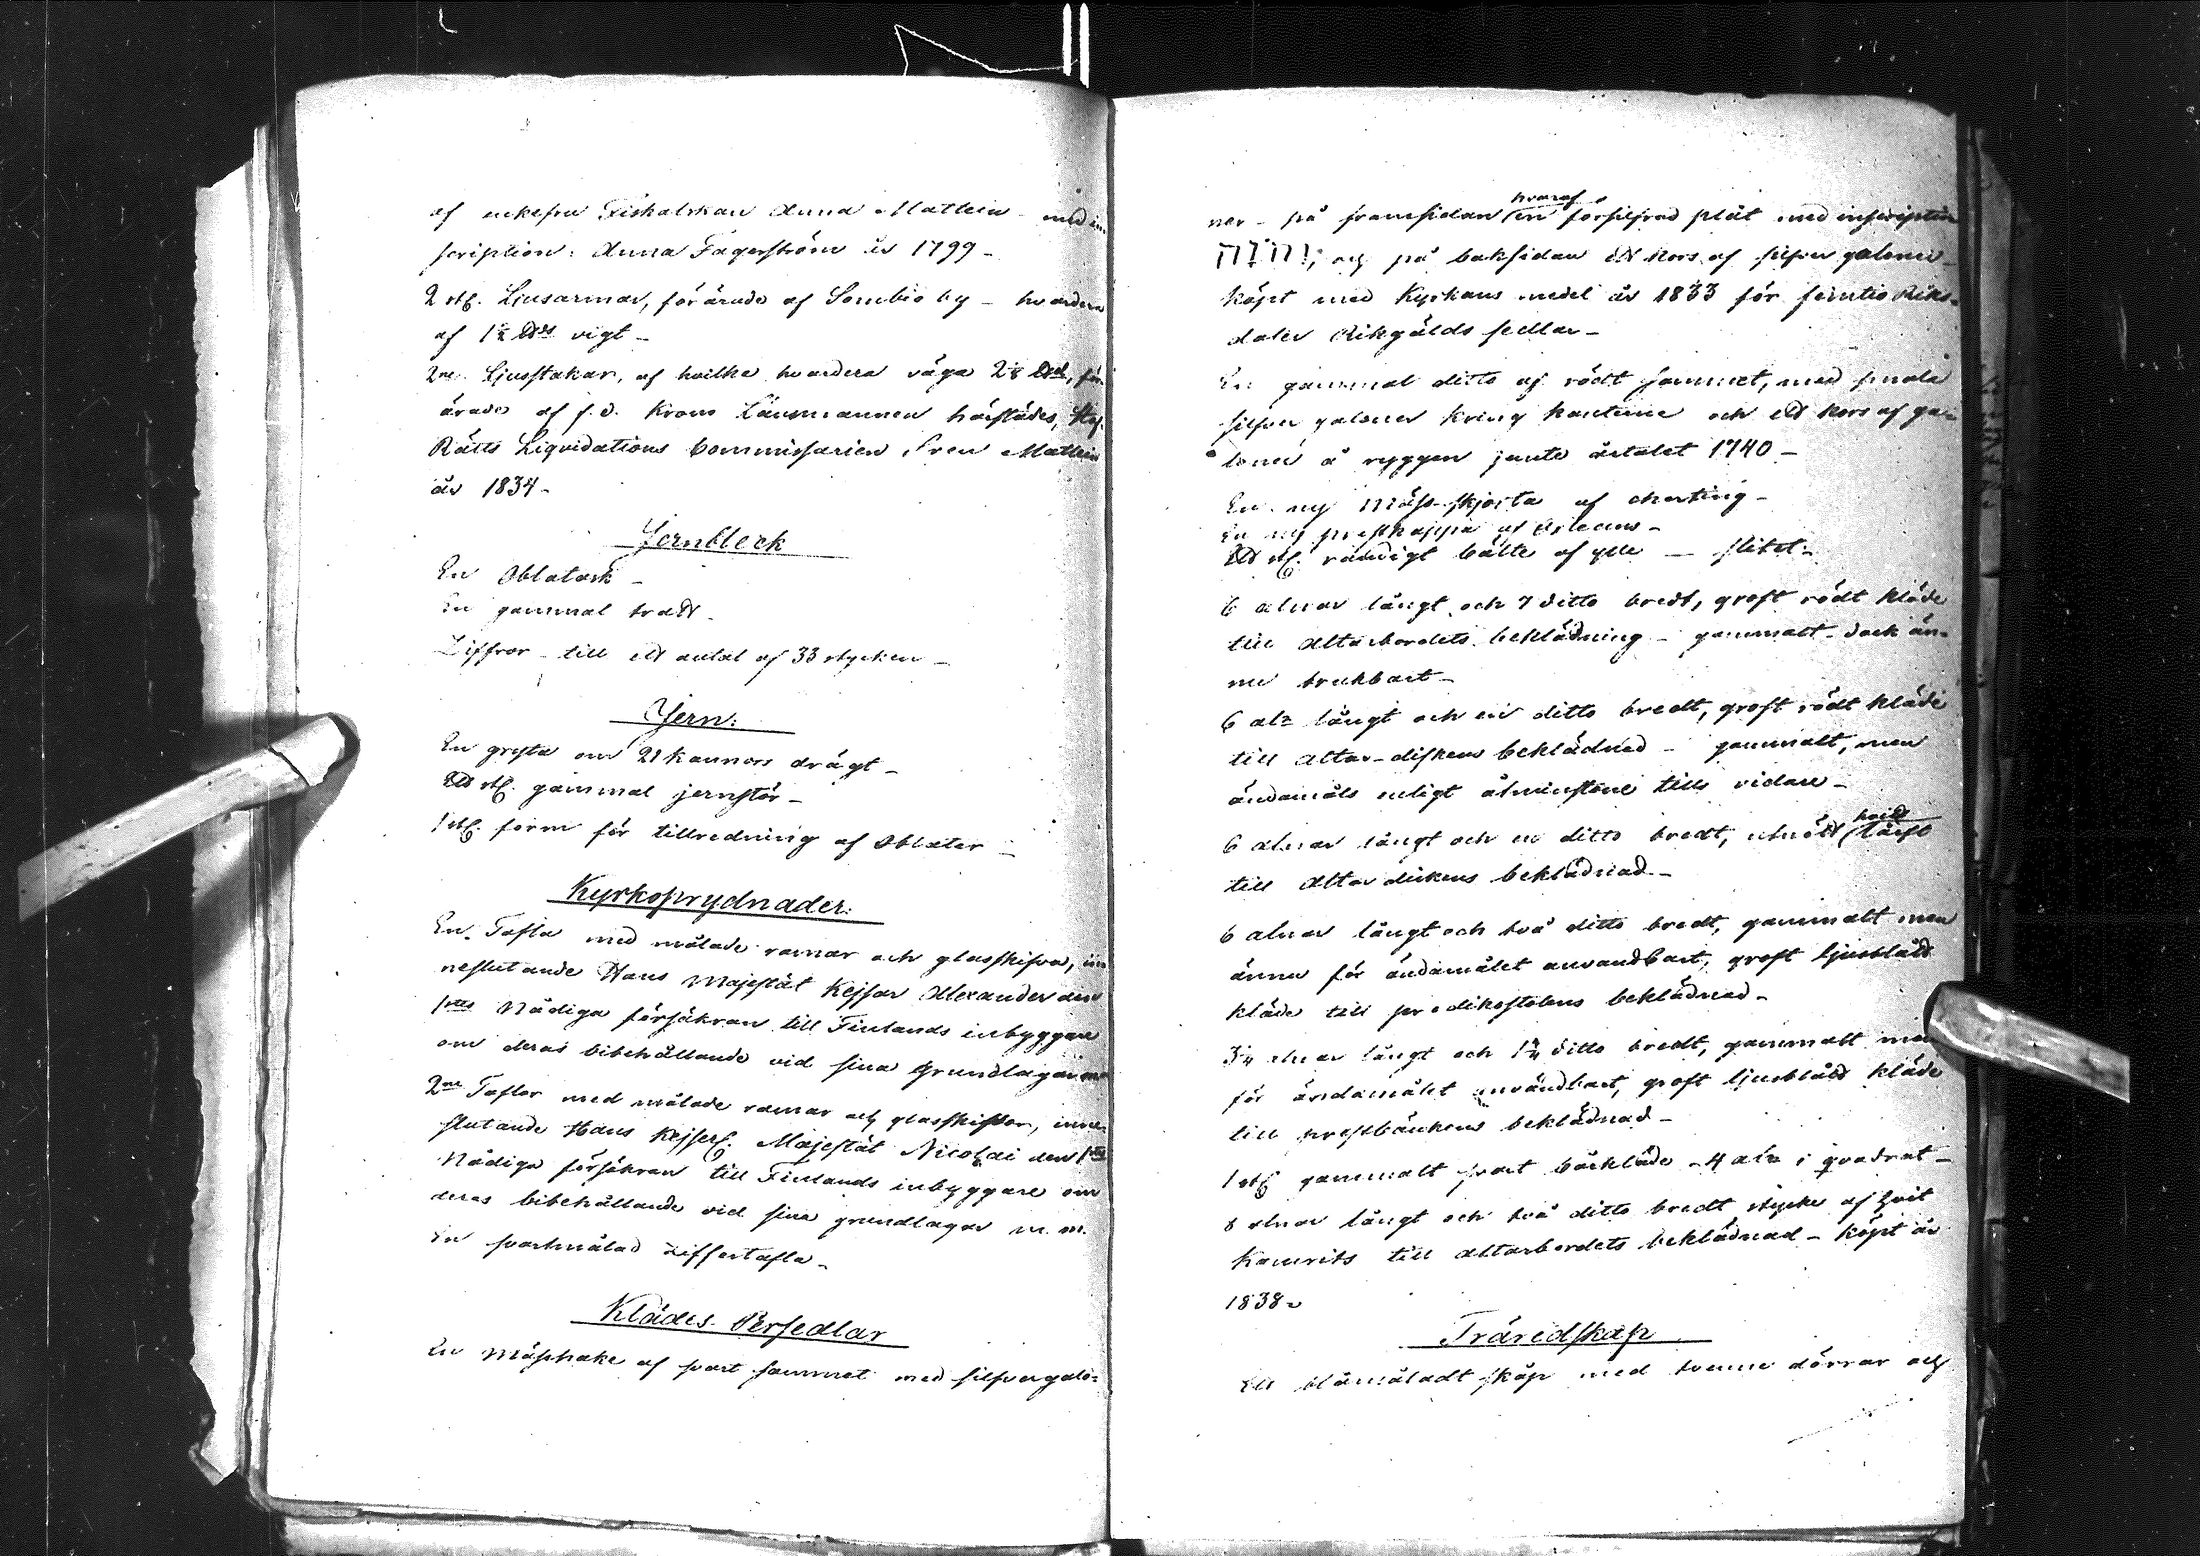 af enkefru Fiskalskan Anna Matlein med in
scription: Anna Fagerström år 1799 -
2 st. Ljusarmar, förärade af Sombio by - hvardera
af 1½ vigt -
2ne Ljusstakar, af hvilka hvardera väga 2⅛ för
ärade af f.d. Krono Länsmannen härstädes, Hof
Rätts Liqvidations Commissarien Sven Matlein
år 1834 -
Jernbleck
En Oblatask -
En gammal tratt -
Ziffror till ett antal af 33 stycken -
Jern:
En gryta om 21 kannors drägt -
Ett st. gammal jernstör -
1 st. form för tillredning af Oblater -
Kyrkoprydnader:
En Tafla med målade ramar och glasskifva, in
neslutande Hans Majestät Kejsar Alexander den
1stes Nådiga försäkran till Finlands inbyggare
om deras bibehållande vid sina Grundlagar
2ne Taflor med målade ramar och glasskifvor, inne
slutande Hans Kejserl. Majestät Nicolai den 1stes
Nådiga försäkran till Finlands inbyggare om
deras bibehållande vid sina grundlagar m. m.
En svartmålad Ziffertafla -
Klädes Persedlar
En Mässhake af svart sammet med silfvergalo-
ner - på framsidan hvaraf en försilfrad plåt med inscription
och på baksidan ett kors af silfver galoner
köpt med Kyrkans medel år 1833 för femtio Riks-
daler Rikgälds sedlar -
En gammal ditto af rödt sammet, med smala
silfver galoner kring kanterne och ett kors af ga-
loner å ryggen jemte årtalet 1740 -
En ny Mäss-skjorta af cherting -
En ny prestkappa af Orleans -
Ett st. randigt bälte af ylle - slitet -
6 alnar långt och 7 ditto bredt, groft rödt kläde
till Altarbordets beklädning - gammalt - dock än-
nu brukbart -
6 alr långt och en ditto bredt, groft rödt kläde
till altar-disken beklädnad - gammalt, men
ändamåls enligt åtminstone tills vidare -
6 alnar långt och en ditto bredt, utnött hvitt lärft
till Altar diskens beklädnad -
6 alnar långt och två ditto bredt, gammalt men
ännu för ändamålet användbart, groft ljusblått
kläde till predikostolens beklädnad -
3¼ alnar långt och 1¼ ditto bredt, gammalt men
för ändamålet användbart, groft ljusblått kläde
till prestbänkens beklädnad -
1 st. gammalt svart bårkläde - 4 alr i qvadrat -
8 alnar långt och två ditto bredt stycke af hvit
Kamrits till altarbordets beklädnad - köpt år
1838 -
Träredskap
Ett blåmåladt skåp med tvenne dörrar och